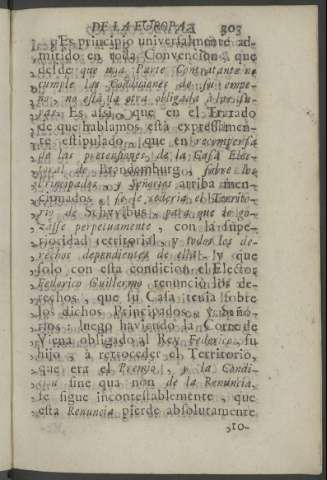 DE LA EUROPA. 303
„ Es principio universalmente ad-
„ mitido en toda Convencion, que
desde que una Parte Contratante no
„ cumple las Condiciones de su empe-
„ ño, no está la otra obligada à las su-
„ yas. Es assi, que en el Tratado
„ de que hablamos está expressamen-
„ te estipulado, que en recompensa
„ de las pretensiones de la Casa Elec-
„ toral de Brandemburgo, sobre los
„ Principados, y Señorìos arriba men-
„ cionados, se le cederia el Territo-
„ rio de Schwibus, para que lo go-
„ zasse perpetuamente, con la supe-
„ rioridad territorial, y todos los de-
„ rechos dependientes de ella: y que
„ solo con esta condicion el Elector
„ Federico Guillermo renunciò los de-
„ rechos, que su Casa tenia sobre
„ los dichos Principados, y Seño-
„ rìos: luego haviendo la Corte de
„ Viena obligado al Rey Federico, su
„ hijo, à retroceder el Territorio,
„ que era el Premio, y la Condi-
„ cion sine qua non de la Renuncia,
„ se sigue incontestablemente, que
„ esta Renuncia pierde absolutamente
„ to-